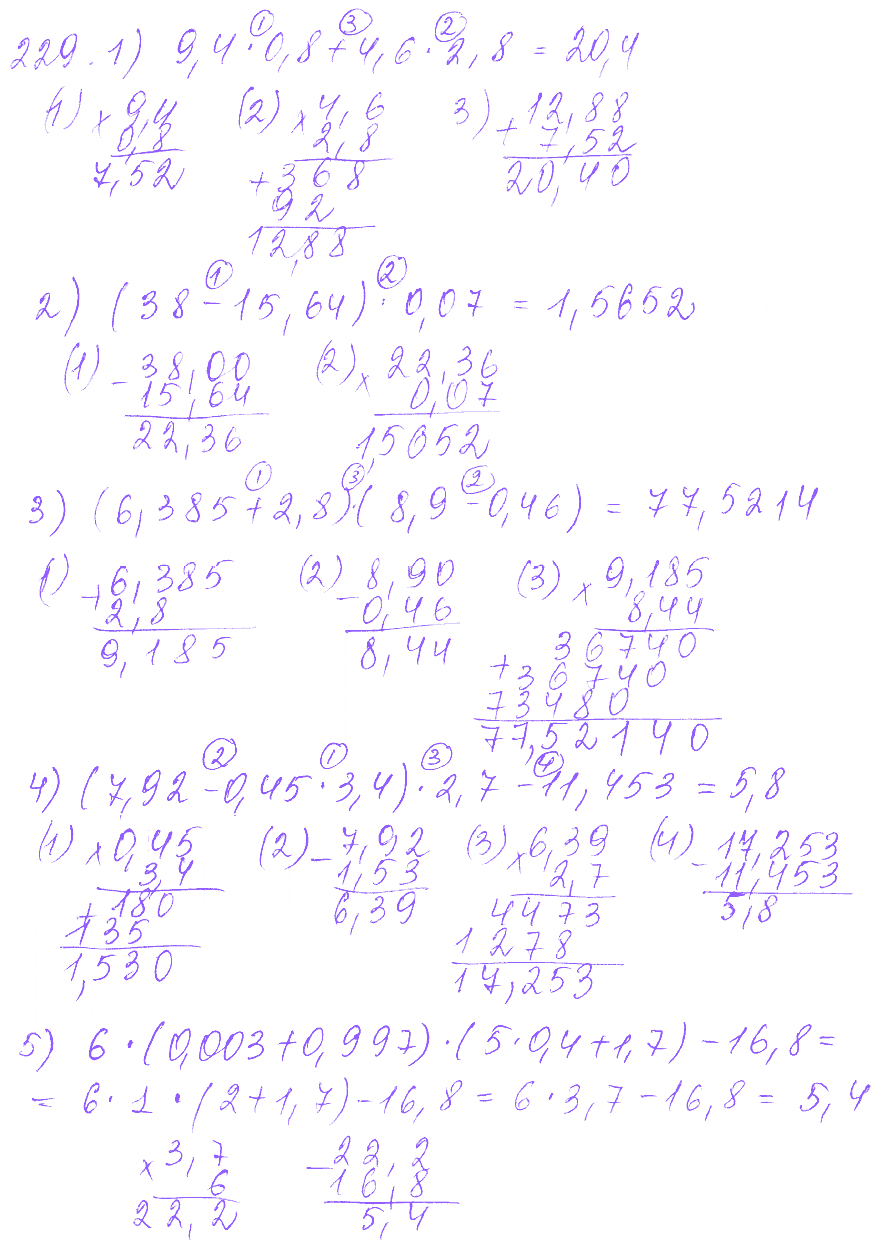 229. 1) 9,4 · 0,8 + 4,6 · 2,8 = 20,4
① ③ ②
(1) × 9,4 (2) × 4,6 3) + 12,88
0,8 2,8 7,52
7,52 + 368 20,40
92
12,88
① ②
2) (38 - 15,64) · 0,07 = 1,5652
(1) - 38,00 (2) × 22,36
15,64 0,07
22,36 1,5652
① ③ ②
3) (6,385 + 2,8) · (8,9 - 0,46) = 77,5214
1) + 6,385 (2) - 8,90 (3) × 9,185
2,8 0,46 8,44
9,185 8,44 36740
+ 36740
73480
77,52140
② ① ③ ④
4) (7,92 - 0,45 · 3,4) · 2,7 - 11,453 = 5,8
(1) × 0,45 (2) - 7,92 (3) × 6,39 (4) - 17,253
3,4 1,53 2,7 11,453
+ 180 6,39 4473 5,8
135 1278
1,530 17,253
5) 6 · (0,003 + 0,997) · (5 · 0,4 + 1,7) - 16,8 =
= 6 · 1 · (2 + 1,7) - 16,8 = 6 · 3,7 - 16,8 = 5,4
× 3,7 - 22,2
6 16,8
22,2 5,4